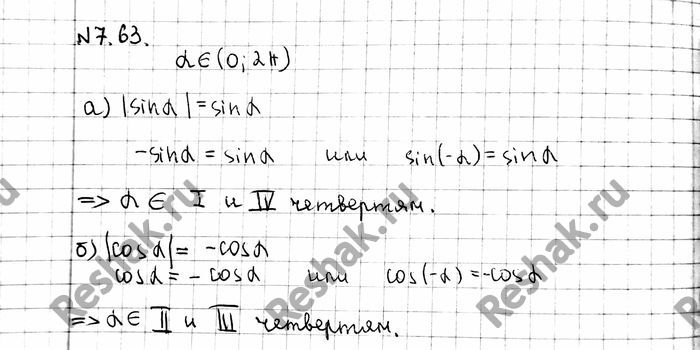 №7.63.
α∈(0; 2π)
а) |sinα|=sinα
-sinα = sinα или sin(-α)=sinα
=> α ∈ I и IV четвертям.
б) |cosα|= -cosα
cosα = - cosα или cos(-α)=-cosα
=> α∈ II и III четвертям.
Reshak.ru
Reshak.ru
Reshak.ru